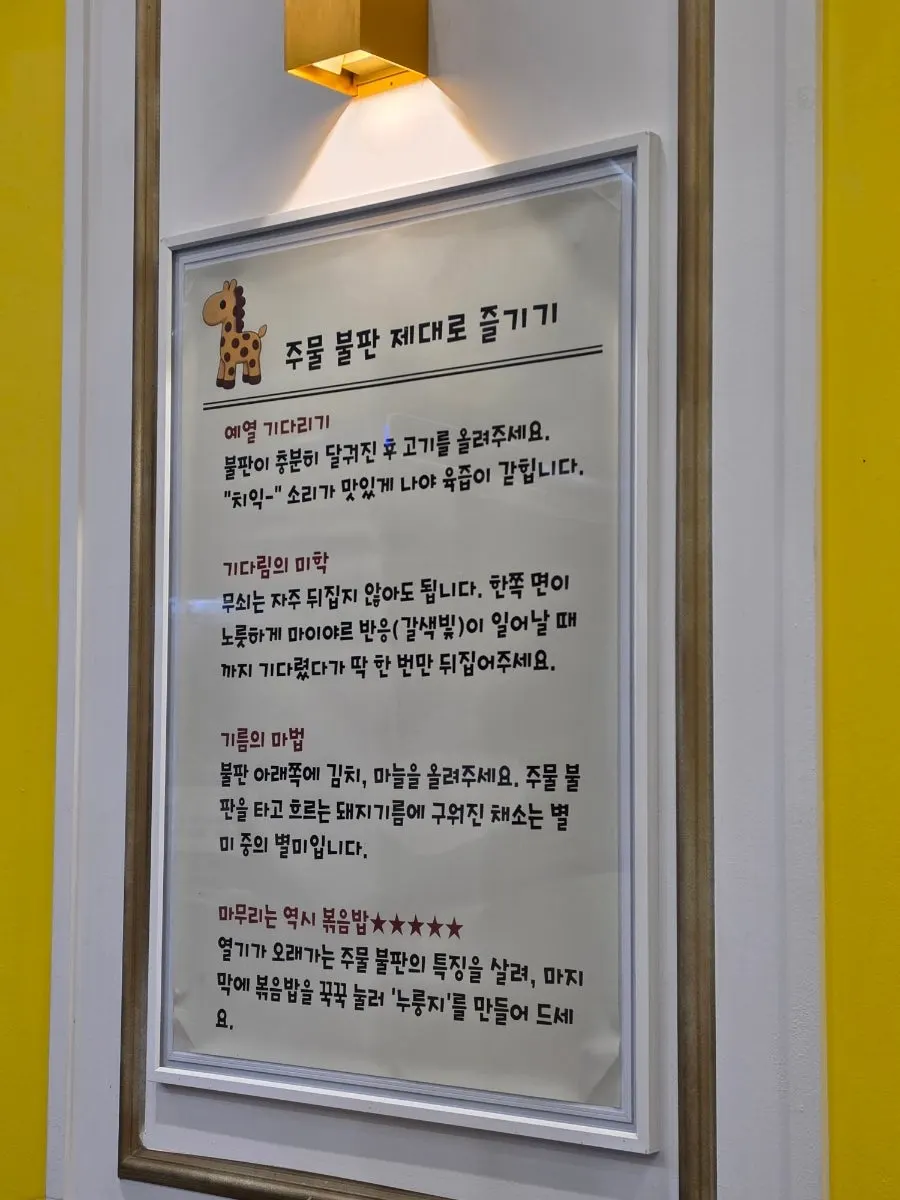 주물 불판 제대로 즐기기
예열 기다리기
불판이 충분히 달궈진 후 고기를 올려주세요.
"치익-" 소리가 맛있게 나야 육즙이 갇힙니다.
기다림의 미학
무쇠는 자주 뒤집지 않아도 됩니다. 한쪽 면이
노릇하게 마이야르 반응(갈색빛)이 일어날 때
까지 기다렸다가 딱 한 번만 뒤집어주세요.
기름의 마법
불판 아래쪽에 김치, 마늘을 올려주세요. 주물 불
판을 타고 흐르는 돼지기름에 구워진 채소는 별
미 중의 별미입니다.
마무리는 역시 볶음밥★★★★★
열기가 오래가는 주물 불판의 특징을 살려, 마지
막에 볶음밥을 꾹꾹 눌러 '누룽지'를 만들어 드세
요.